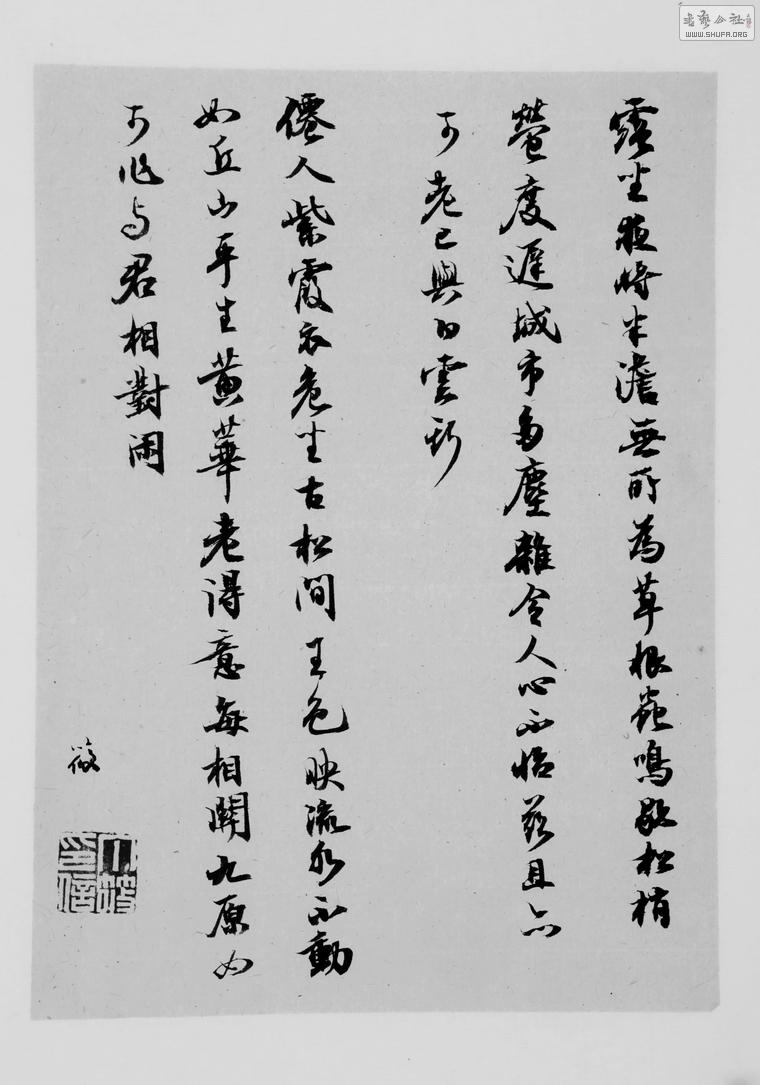 書藝公社
WWW.SHUFA.ORG
露坐夜將半澹無所為草根蟲鳴歇松梢
螢度遲城市多塵雜令人心不怡茲且亦
可老已與白雲期
僊人紫霞衣危坐古松間玉色映流水不動
如丘山平生黃華老得意每相關九原如
可作与君相對閑
筱